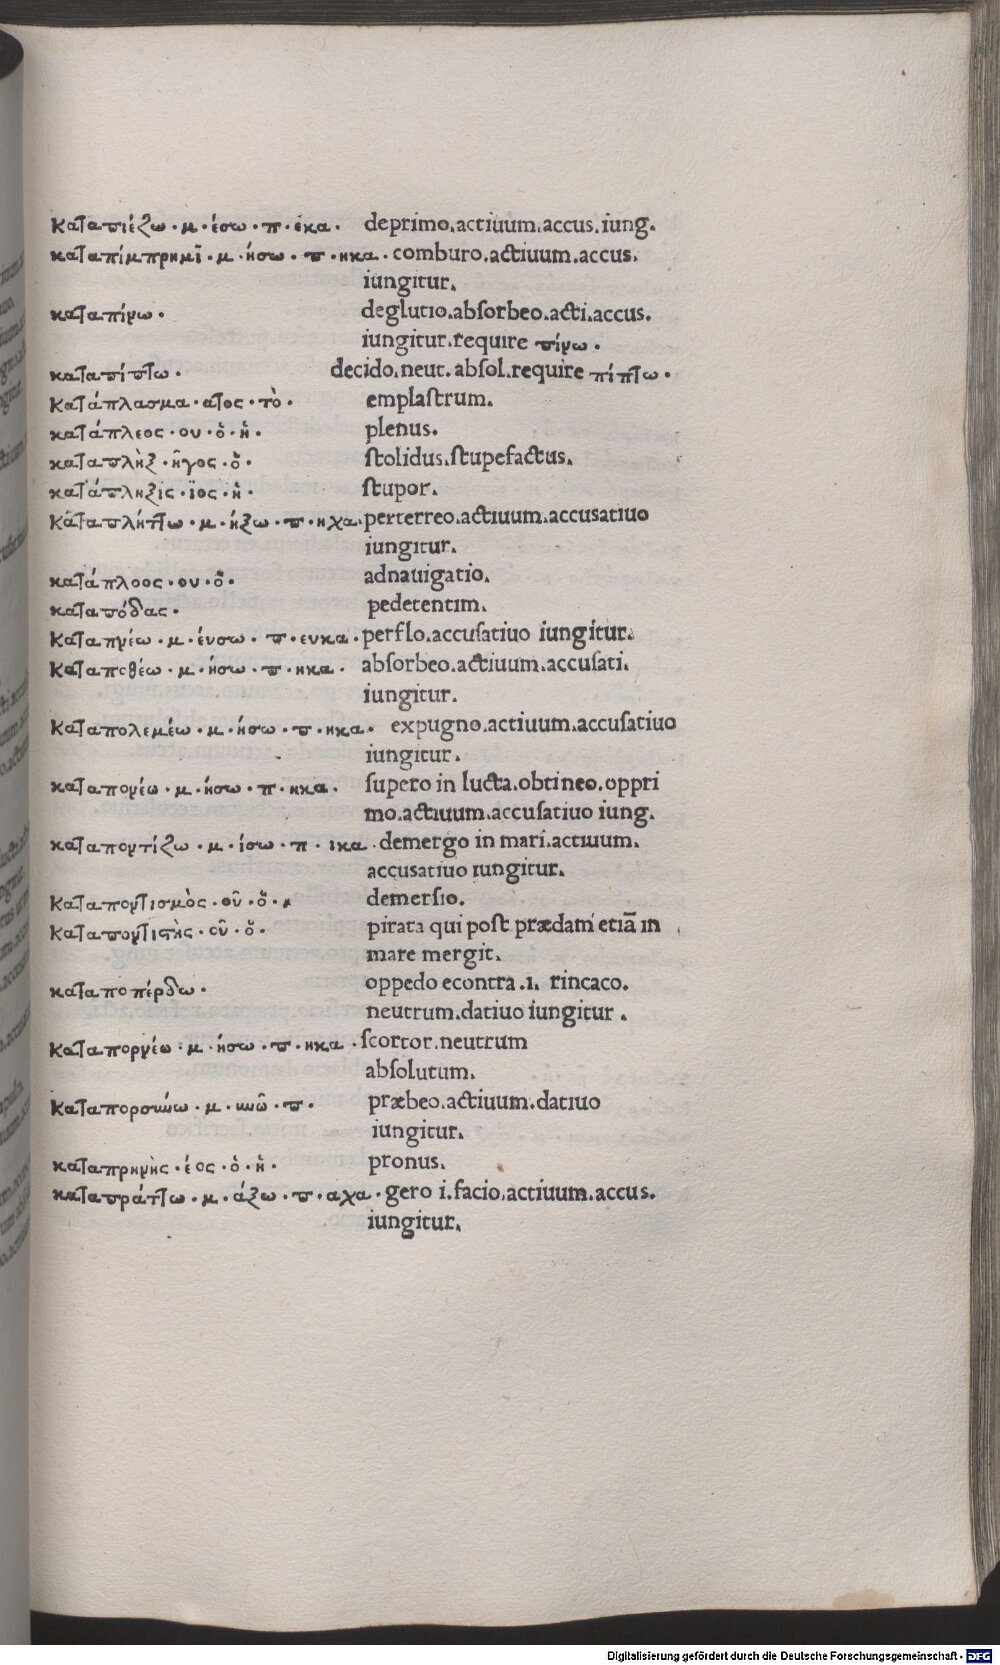 καταπιέζω·μ·έσω·π·εκα· deprimo.actiuum.accus.iung.
καταπίμπρημῖ·μ·ήσω·π·ηκα· comburo.actiuum.accus.
iungitur.
καταπίνω· deglutio.absorbeo.acti.accus.
iungitur.require πίνω·
καταπίπτω· decido.neut.absol.require πίπτω·
κατάπλασμα·ατος·τὸ· emplastrum.
κατάπλεος·ου·ὅ·ἥ· plenus.
καταπλὴξ·ῆγος·ὅ· stolidus.stupefactus.
κατάπληξις·ϊος·ἥ· stupor.
καταπλήττω·μ·ήξω·π·ηχα·perterreo.actiuum.accusatiuo
iungitur.
κατάπλοος·ου·ὅ· adnauigatio.
καταπόδας· pedetentim.
καταπνέω·μ·ένσω·π·ευκα·perflo.accusatiuo iungitur.
καταποθέω·μ·ήσω·π·ηκα· absorbeo.actiuum.accusati.
iungitur.
καταπολεμέω·μ·ήσω·π·ηκα· expugno.actiuum.accusatiuo
iungitur.
καταπονέω·μ·ήσω·π·ηκα· supero in lucta.obtineo.oppri
mo.actiuum.accusatiuo iung.
καταποντίζω·μ·ίσω·π·ικα·demergo in mari.actiuum.
accusatiuo iungitur.
καταποντισμὸς·οῦ·ὅ· demersio.
καταποντιστὴς·οῦ·ὅ· pirata qui post prædam etiā in
mare mergit.
καταποπέρδω· oppedo econtra.i. rincaco.
neutrum.datiuo iungitur.
καταπορνέω·μ·ήσω·π·ηκα·scortor.neutrum
absolutum.
καταπορσύνω·μ·υνῶ·π· præbeo.actiuum.datiuo
iungitur.
καταπρηνὴς·έος·ὁ·ἥ· pronus.
καταπράττω·μ·άξω·π·αχα·gero i.facio.actiuum.accus.
iungitur.
Digitalisierung gefördert durch die Deutsche Forschungsgemeinschaft - DFG